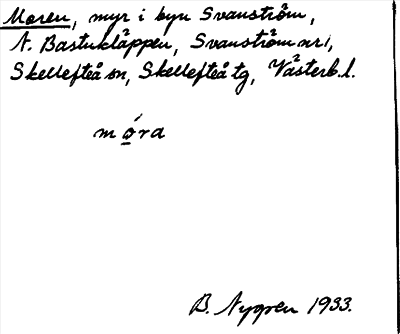 Moren, myr i byn Svanström,
N. Bastukläppen, Svanström nr 1,
Skellefteå sn, Skellefteå tg, Västerb. l.
mo̲ra
B. Nygren 1933.